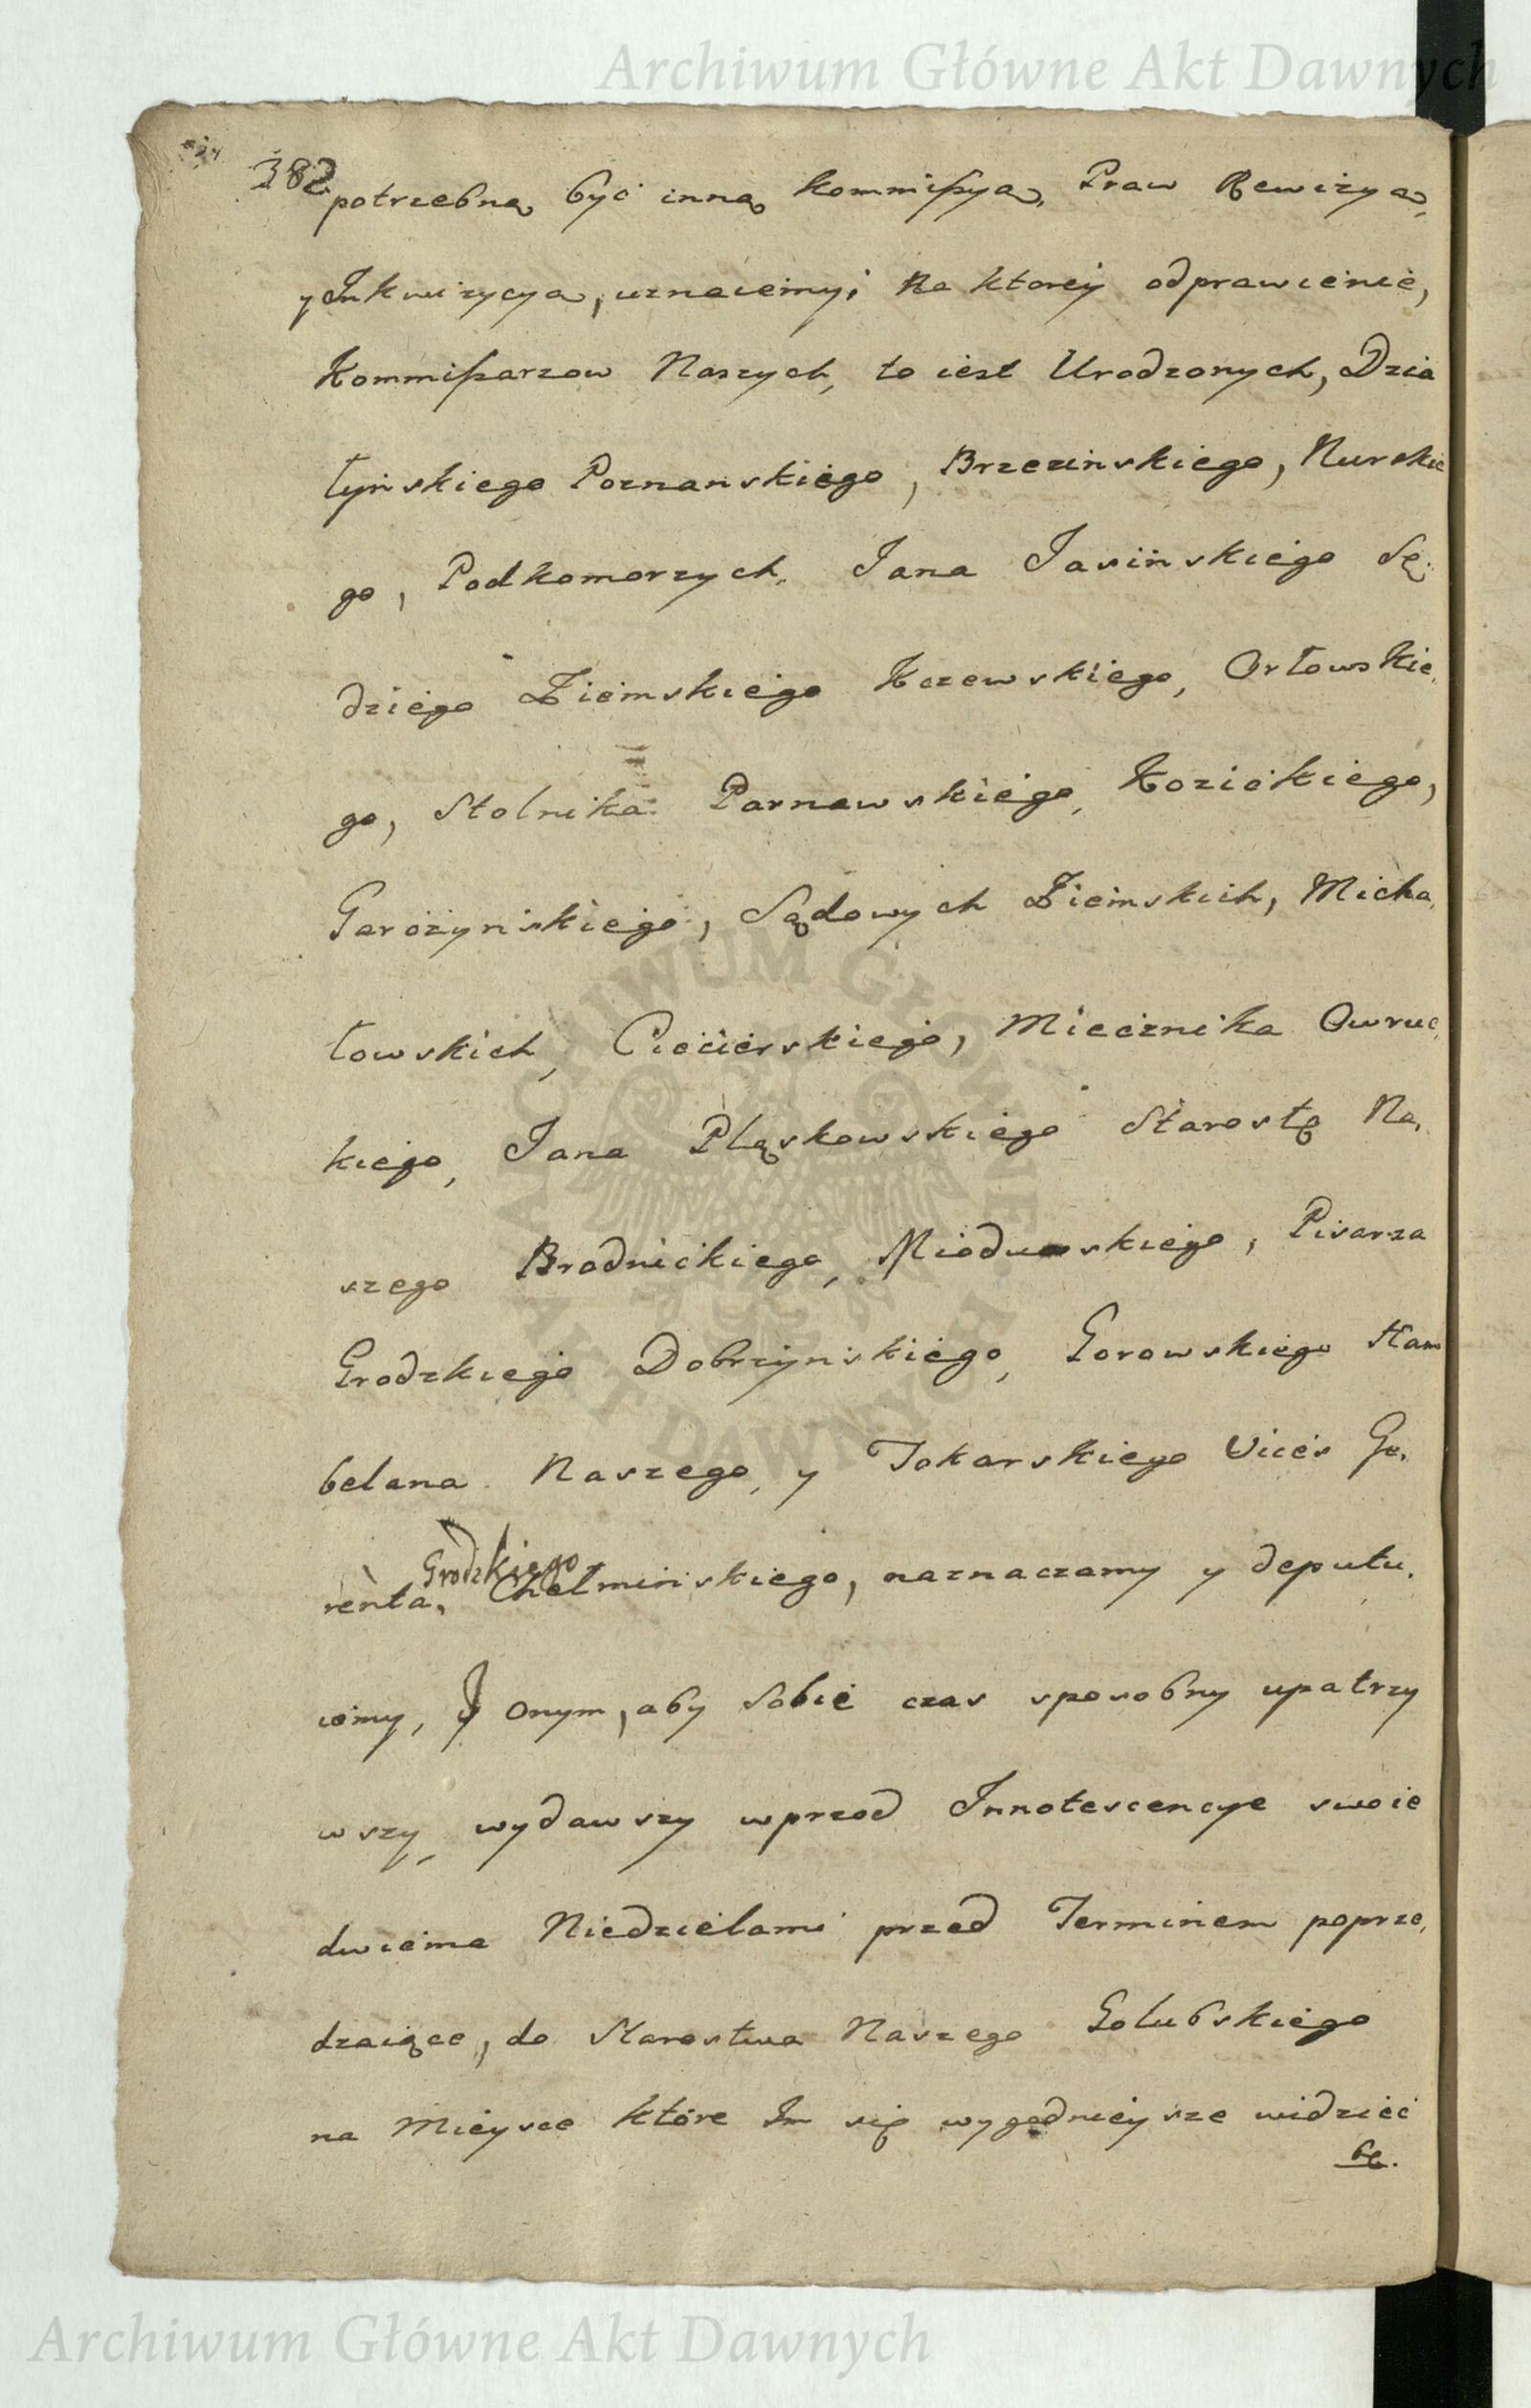 Archiwum Główne Akt Dawnych
382
potrzebną być inną kommissyą, Praw Rewizyą,
y Inkwizycyą, uznaiemy; Na ktorey odprawienie,
Kommissarzow Naszych, to iest Urodzonych, Dzia
łyńskiego Poznanskiego, Brzezinskiego, Nurskie
go, Podkomorzych. Jana Jasińskiego Sę,
dziego Ziemskiego Kczewskiego, Orłowskie,
go, Stolnika Parnawskiego, Kozickiego,
Garożyńskiego, Sądowych Ziemskich, Micha,
łowskich, Ciecierskiego, Miecznika Owruc,
kiego, Jana Pląskowskiego Starostę Na,
szego Brodnickiego, Pisarza
Grodzkiego Dobrzyńskiego, Gorowskiego Ham
belana Naszego, y Tokarskiego Vices Ge,
Grodzkiego
renta, Chełmińskiego, naznaczamy y deputu,
iemy, Y onym, aby Sobie czas sposobny upatrzy
wszy, wydawszy wprzod Innotescencye swoie
dwiema Niedzielami przed Terminem poprze,
dzaiące, do Starostwa Naszego Golubskiego
na Mieysce które Im się wygodnieysze widzieć
bę.
ARCHIWUM GŁÓWNE
AKT DAWNYCH
Archiwum Główne Akt Dawnych